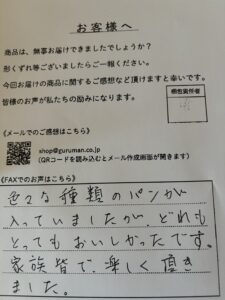 お客様へ
商品は、無事お届けできましたでしょうか？
形くずれ等ございましたらご一報ください。
今回お届けの商品に関するご感想など頂けますと幸いです。
皆様のお声が私たちの励みになります。
梱包責任者
《メールでのご感想はこちら》
shop@guruman.co.jp
（QRコードを読み込むとメール作成画面が開きます）
《FAXでのお声はこちら》
色々な種類のパンが
入っていましたが、どれも
とってもおいしかったです。
家族皆で、楽しく頂き
ました。